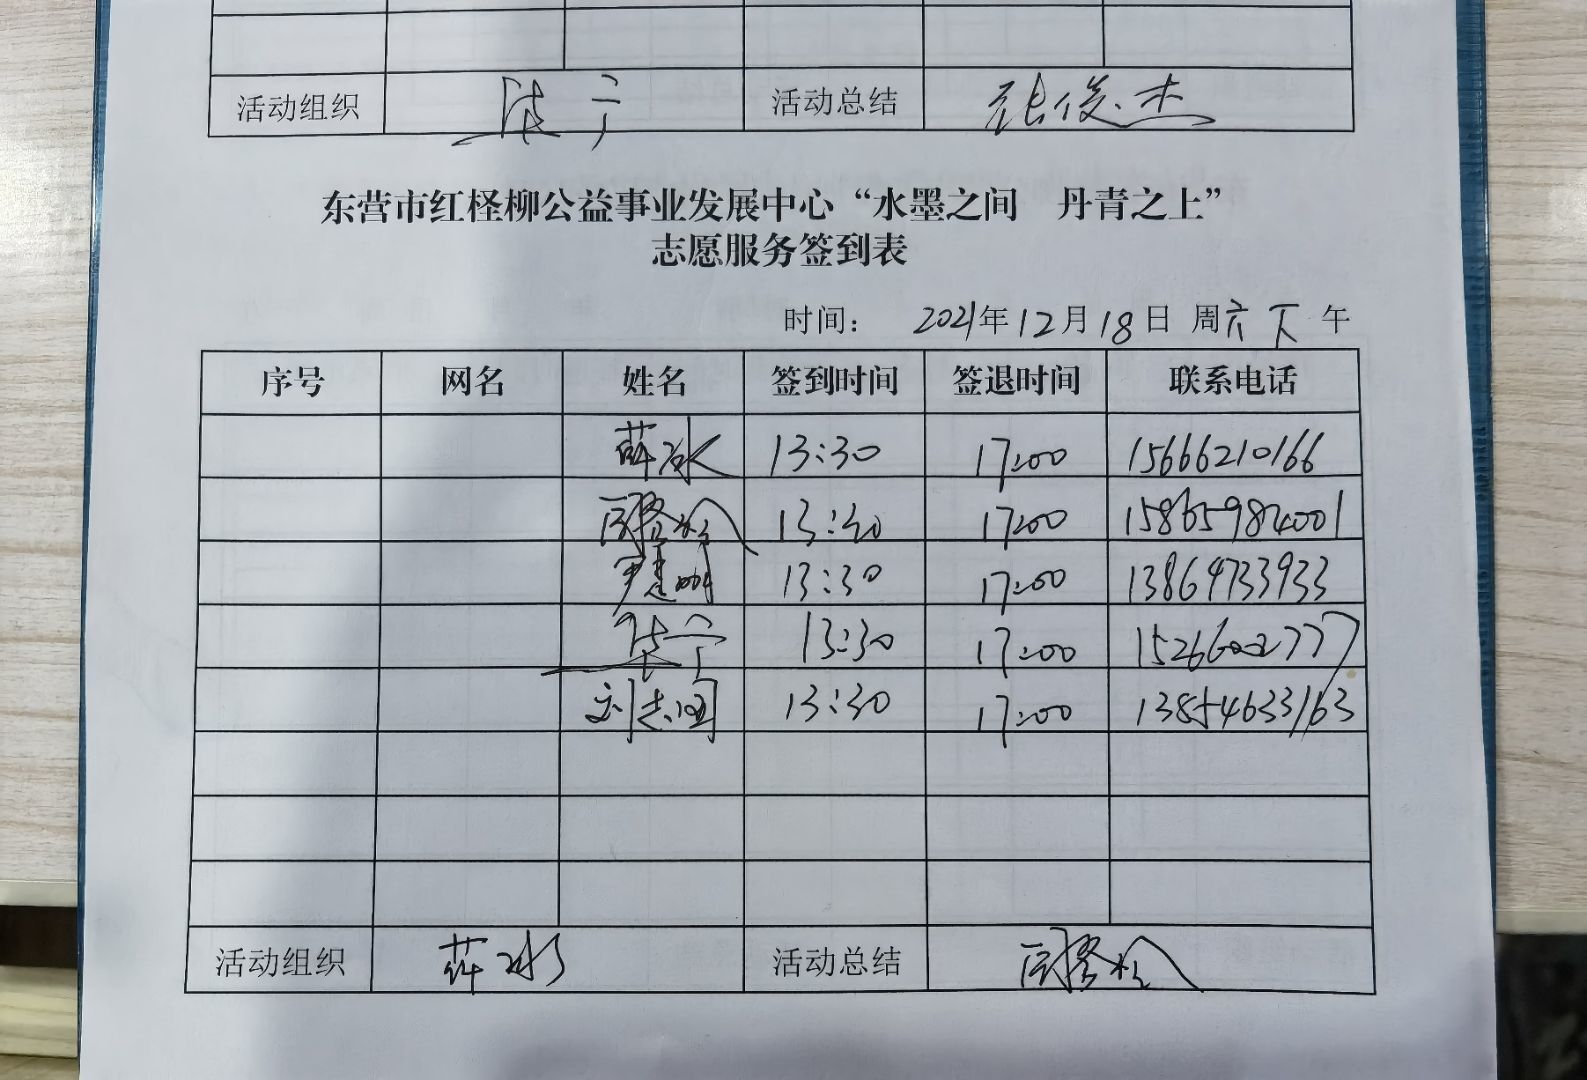 活动组织 活动总结 张俊杰
东营市红柽柳公益事业发展中心“水墨之间 丹青之上”
志愿服务签到表
时间： 2021年12月18日 周六下午
序号 网名 姓名 签到时间 签退时间 联系电话
薛冰 13:30 17:00 15666210166
13:30 17:00 15865984001
13:30 17:00 13864733933
13:30 17:00 15266002777
13:30 17:00 13854633163
活动组织 薛冰 活动总结